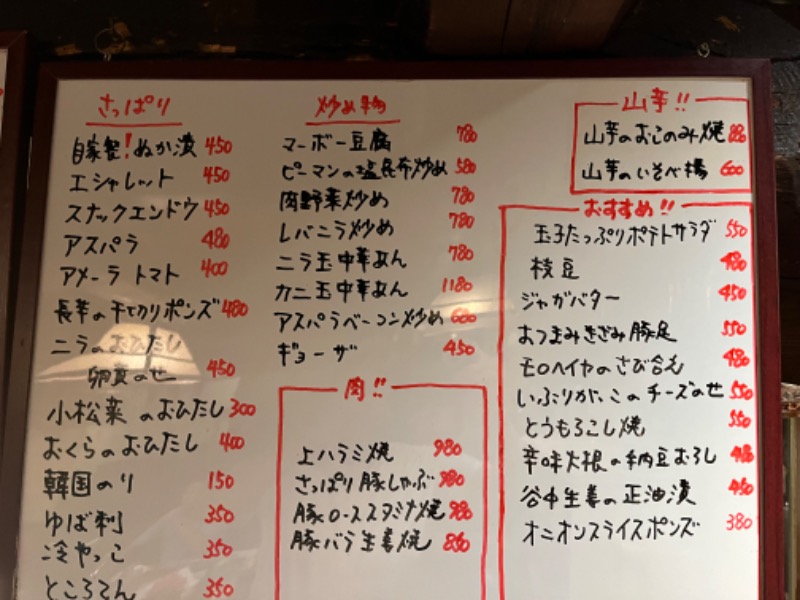 さっぱり
自家製!ぬか漬 450
エシャレット 450
スナックエンドウ 450
アスパラ 480
アメーラトマト 400
長芋の千切りポンズ 480
ニラのおひたし
卵黄のせ 450
小松菜のおひたし 300
おくらのおひたし 400
韓国のり 150
ゆば刺 350
冷やっこ 350
ところてん 350
炒め物
マーボー豆腐 780
ピーマンの塩昆布炒め 580
肉野菜炒め 780
レバニラ炒め 780
ニラ玉中華あん 780
カニ玉中華あん 1180
アスパラベーコン炒め 680
ギョーザ 450
肉!!
上ハラミ焼 980
さっぱり豚しゃぶ 980
豚ローススタミナ焼 980
豚バラ生姜焼 880
山芋!!
山芋のおこのみ焼 880
山芋のいそべ揚 600
おすすめ!!
玉子たっぷりポテトサラダ 550
枝豆 480
ジャガバター 450
おつまみきざみ豚足 550
モロヘイヤのさび合え 480
いぶりがっこのチーズのせ 550
とうもろこし焼 550
辛味大根の納豆おろし 480
谷中生姜の正油漬 450
オニオンスライスポンズ 380